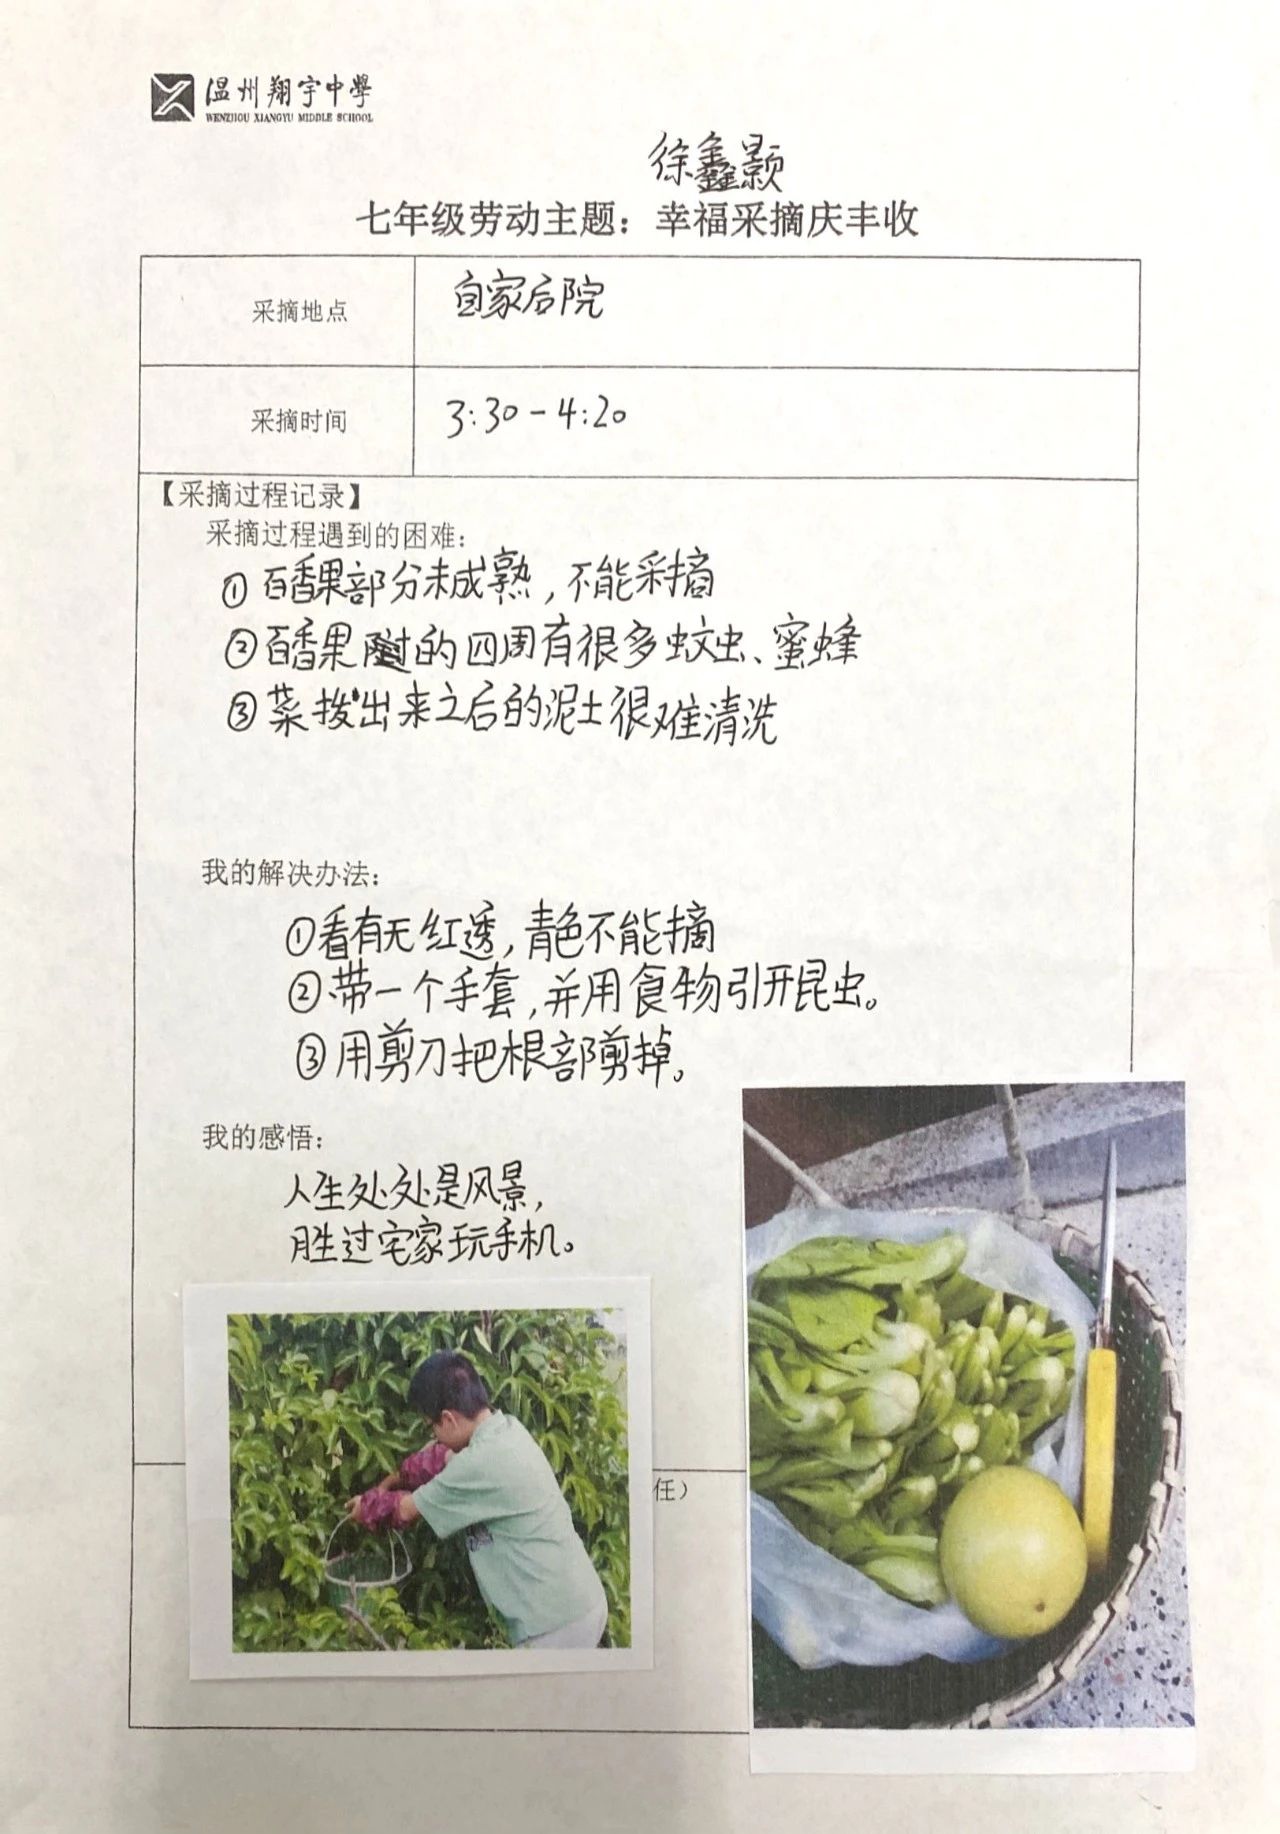 温州翔宇中學
WENZHOU XIANGYU MIDDLE SCHOOL
徐鑫颢
七年级劳动主题：幸福采摘庆丰收
采摘地点
自家后院
采摘时间
3:30-4:20
【采摘过程记录】
采摘过程遇到的困难：
①百香果部分未成熟，不能采摘
②百香果的四周有很多蚊虫、蜜蜂
③菜拨出来之后的泥土很难清洗
我的解决办法：
①看有无红透，青色不能摘
②带一个手套，并用食物引开昆虫。
③用剪刀把根部剪掉。
我的感悟：
人生处处是风景，
胜过宅家玩手机。
任）